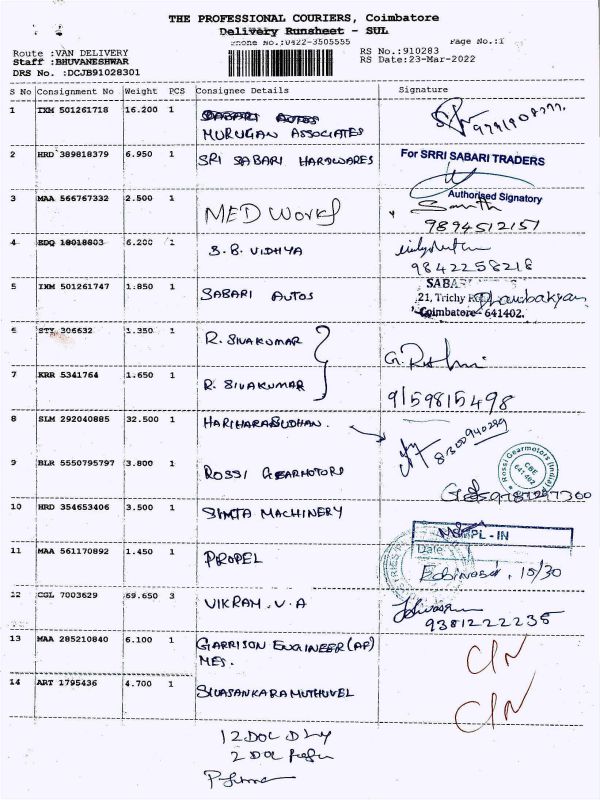 THE PROFESSIONAL COURIERS, Coimbatore
Delivery Runsheet - SUL
Phone No.:0422-3505555 Page No.:1
Route :VAN DELIVERY RS No.:910283
Staff :BHUVANESHWAR RS Date:23-Mar-2022
DRS No. :DCJB91028301
S No Consignment No Weight PCS Consignee Details Signature
1 IXM 501261718 16.200 1 SABARI AUTOS
MURUGAN ASSOCIATES
2 HRD 389818379 6.950 1 SRI SABARI HARDWARES For SRRI SABARI TRADERS
Authorised Signatory
3 MAA 566767332 2.500 1 MED Works
9894512157
4 EDQ 18018603 6.200 1 S.B. VIDHYA
9842258218
5 IXM 501261747 1.850 1 SABARI AUTOS SABA
21, Trichy
Coimbatore- 641402.
6 STY 306632 1.350 1 R. SIVAKUMAR
7 KRR 5341764 1.650 1 R. SIVAKUMAR 9159815498
8 SLM 292040885 32.500 1 HARIHARASUDHAN. 8300940299
9 BLR 5550795797 3.800 1 ROSSI GEARMOTORS Rossi Gearmotors (India) P
CBE
641 402
9787297300
10 HRD 354653406 3.500 1 SIMTA MACHINERY PL - IN
11 MAA 561170892 1.450 1 PROPEL Date
15/30
12 CGL 7003629 69.650 3 VIKRAM. V.A
9381222235
13 MAA 285210840 6.100 1 GARRISON ENGINEER (AF)
MES. C/N
14 ART 1795436 4.700 1 SIVASANKARAMUTHUVEL C/N
12 DOC DLY
2 DOC